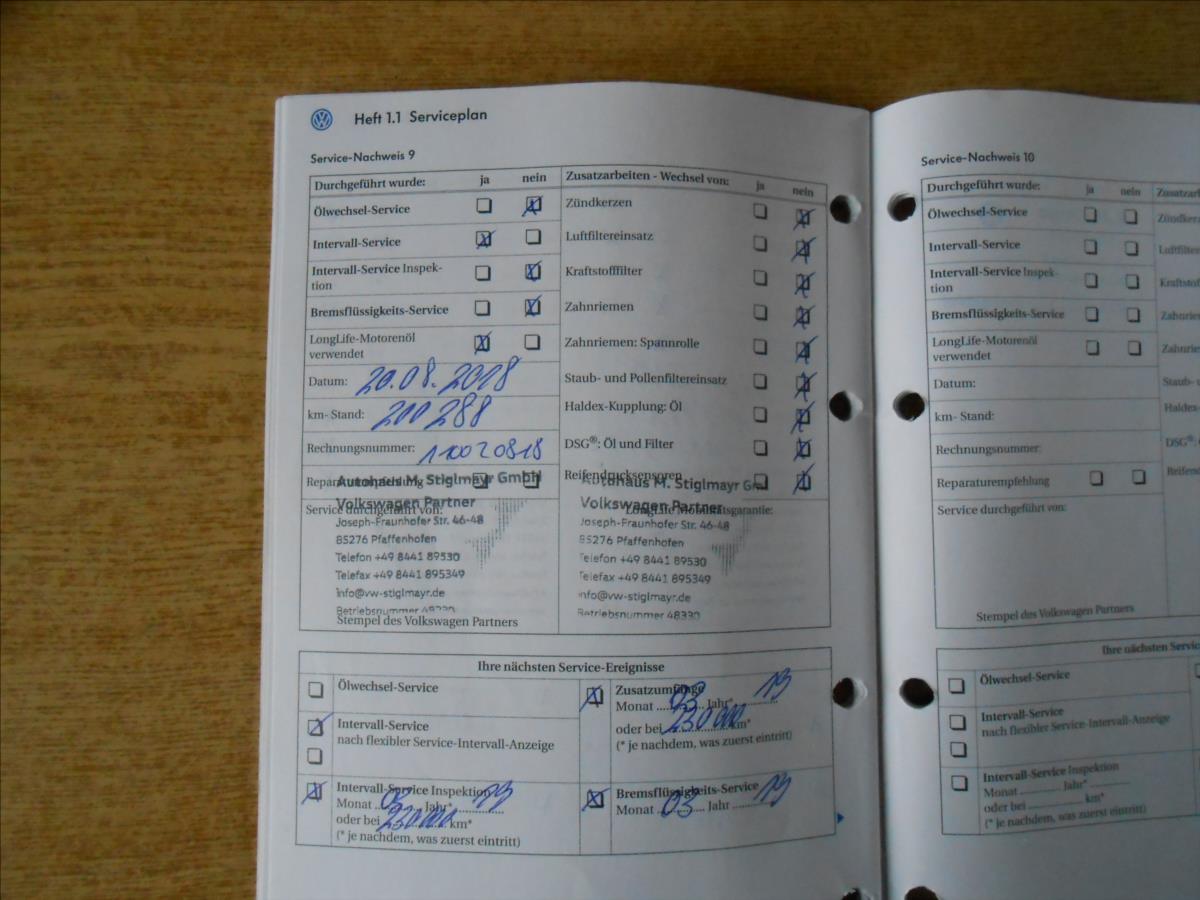 Heft 1.1 Serviceplan
Service-Nachweis 9
Durchgeführt wurde: ja nein
Ölwechsel-Service
Intervall-Service
Intervall-Service Inspek-
tion
Bremsflüssigkeits-Service
LongLife-Motorenöl
verwendet
Datum: 20.08.2018
km- Stand: 200288
Rechnungsnummer: 110020818
Service durchgeführt von:
Autohaus M. Stiglmayr GmbH
Volkswagen Partner
Joseph-Fraunhofer Str. 46-48
85276 Pfaffenhofen
Telefon +49 8441 89530
Telefax +49 8441 895349
info@vw-stiglmayr.de
Betriebsnummer 48330
Stempel des Volkswagen Partners
Zusatzarbeiten - Wechsel von: ja nein
Zündkerzen
Luftfiltereinsatz
Kraftstofffilter
Zahnriemen
Zahnriemen: Spannrolle
Staub- und Pollenfiltereinsatz
Haldex-Kupplung: Öl
DSG®: Öl und Filter
Reifendrucksensoren
Autohaus M. Stiglmayr Gm
Volkswagen Partner
Joseph-Fraunhofer Str. 46-48
85276 Pfaffenhofen
Telefon +49 8441 89530
Telefax +49 8441 895349
info@vw-stiglmayr.de
Betriebsnummer 48330
Ihre nächsten Service-Ereignisse
Ölwechsel-Service
Intervall-Service
nach flexibler Service-Intervall-Anzeige
Intervall-Service Inspektion
Monat 03 Jahr* 19
oder bei 230000 km*
(* je nachdem, was zuerst eintritt)
Zusatzumfänge
Monat 03 Jahr* 19
oder bei 230000 km*
(* je nachdem, was zuerst eintritt)
Bremsflüssigkeits-Service
Monat 03 Jahr 19
Service-Nachweis 10
Durchgeführt wurde: ja nein
Ölwechsel-Service
Intervall-Service
Intervall-Service Inspek-
tion
Bremsflüssigkeits-Service
LongLife-Motorenöl
verwendet
Datum:
km- Stand:
Rechnungsnummer:
Reparaturempfehlung
Service durchgeführt von:
Stempel des Volkswagen Partners
Ihre nächsten Servic
Ölwechsel-Service
Intervall-Service
nach flexibler Service-Intervall-Anzeige
Intervall-Service Inspektion
Monat Jahr*
oder bei km*
(* je nachdem, was zuerst eintritt)